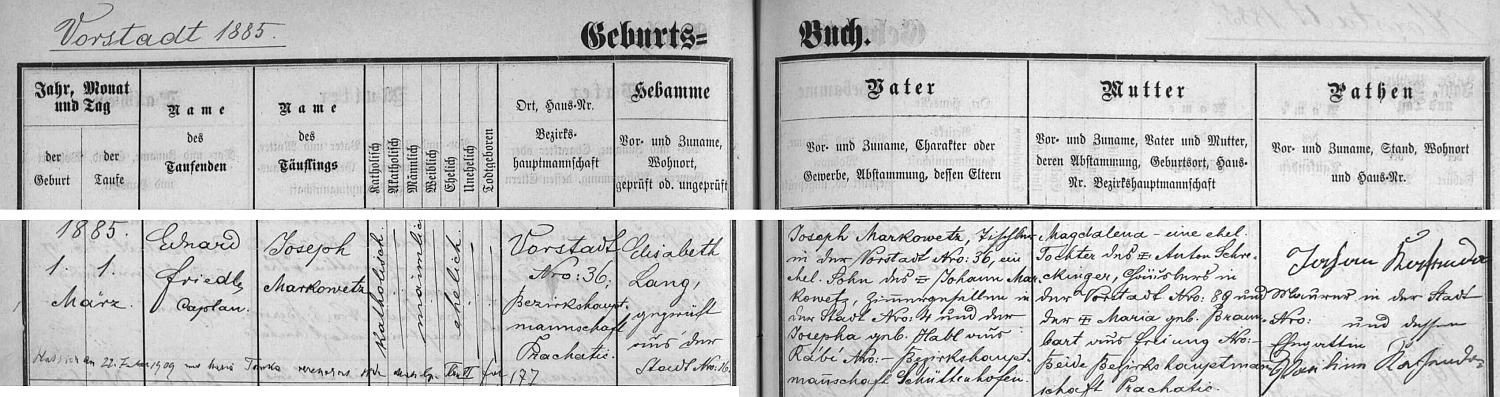 Vorstadt 1885.
Geburts=
Buch.
Jahr, Monat
und Tag
der
Geburt
der
Taufe
Name
des
Taufenden
Name
des
Täuflings
Katholisch
Akatholisch
Männlich
Weiblich
Ehelich
Unehelich
Todtgeboren
Ort, Haus-Nr.
Bezirks-
hauptmannschaft
Hebamme
Vor- und Zuname,
Wohnort,
geprüft od. ungeprüft
Vater
Vor- und Zuname, Charakter oder
Gewerbe, Abstammung, dessen Eltern
Mutter
Vor- und Zuname, Vater und Mutter,
deren Abstammung, Geburtsort, Haus-
Nr. Bezirkshauptmannschaft
Pathen
Vor- und Zuname, Stand, Wohnort
und Haus-Nr.
1885.
1. 1.
März.
Eduard
Friedl,
Caplan.
Joseph
Markowetz
katholisch
männlich
ehelich
Vorstadt
Nro: 36,
Bezirkshaupt-
mannschaft
Prachatic.
Elisabeth
Lang,
geprüft
aus der
Stadt Nro: 16.
Joseph Markowetz, Tischler
in der Vorstadt Nro: 36, ein
ehel. Sohn des Johann Mar-
kowetz, in
der Stadt Nro: 4 und der
Josepha geb. Habl aus
Rabi Nro: – Bezirkshaupt-
mannschaft Schüttenhofen.
Magdalena – eine ehel.
Tochter des Anton
in
der Vorstadt Nro: 89 und
der Maria geb. Braun-
bart aus Freiung Nro: –
Beide Bezirkshauptman
schaft Prachatic.
Maurer in der Stadt
Nro: und dessen
Ehegattin